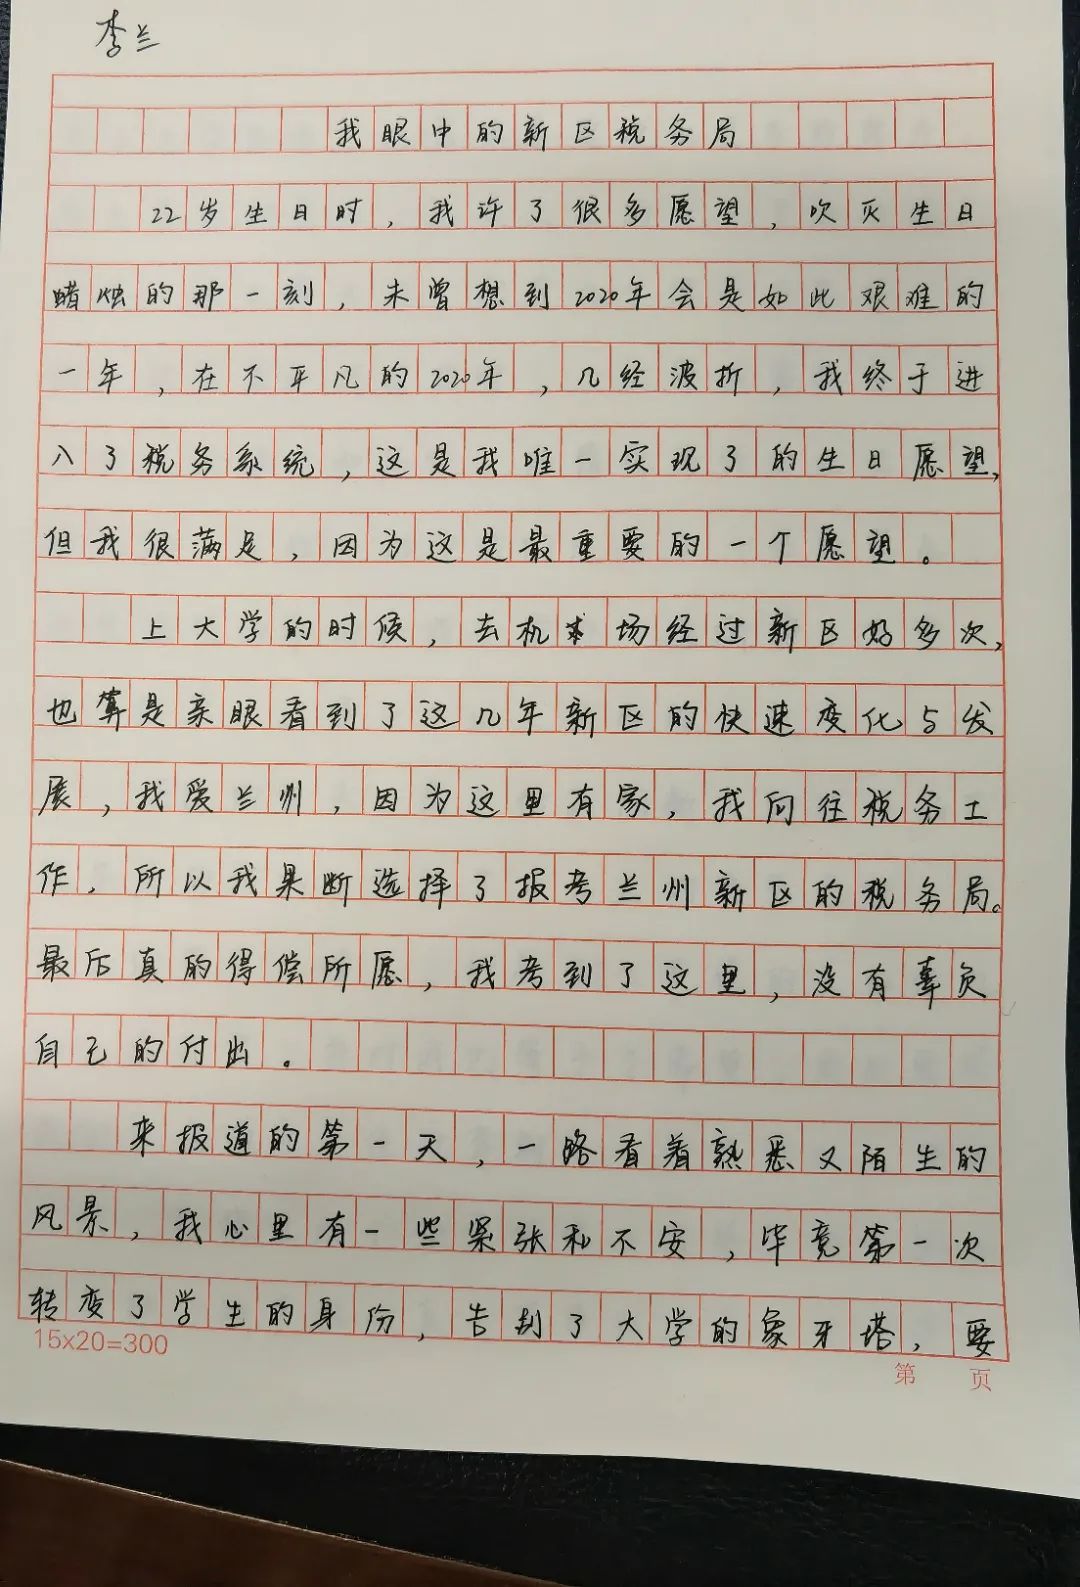 李兰
我眼中的新区税务局
22岁生日时，我许了很多愿望，吹灭生日
蜡烛的那一刻，未曾想到2020年会是如此艰难的
一年，在不平凡的2020年，几经波折，我终于进
入了税务系统，这是我唯一实现了的生日愿望，
但我很满足，因为这是最重要的一个愿望。
上大学的时候，去机场经过新区好多次，
也算是亲眼看到了这几年新区的快速变化与发
展，我爱兰州，因为这里有家，我向往税务工
作，所以我果断选择了报考兰州新区的税务局。
最后真的得偿所愿，我考到了这里，没有辜负
自己的付出。
来报道的第一天，一路看着熟悉又陌生的
风景，我心里有一些紧张和不安，毕竟第一次
转变了学生的身份，告别了大学的象牙塔，要
15x20=300
第 页